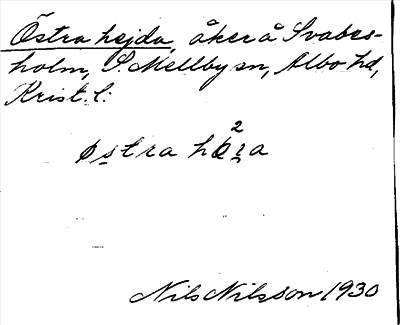 Östra hejda, åker å Svabes-
holm, S. Mellby sn, Albo hd,
Krist. l.
Nils Nilsson 1930